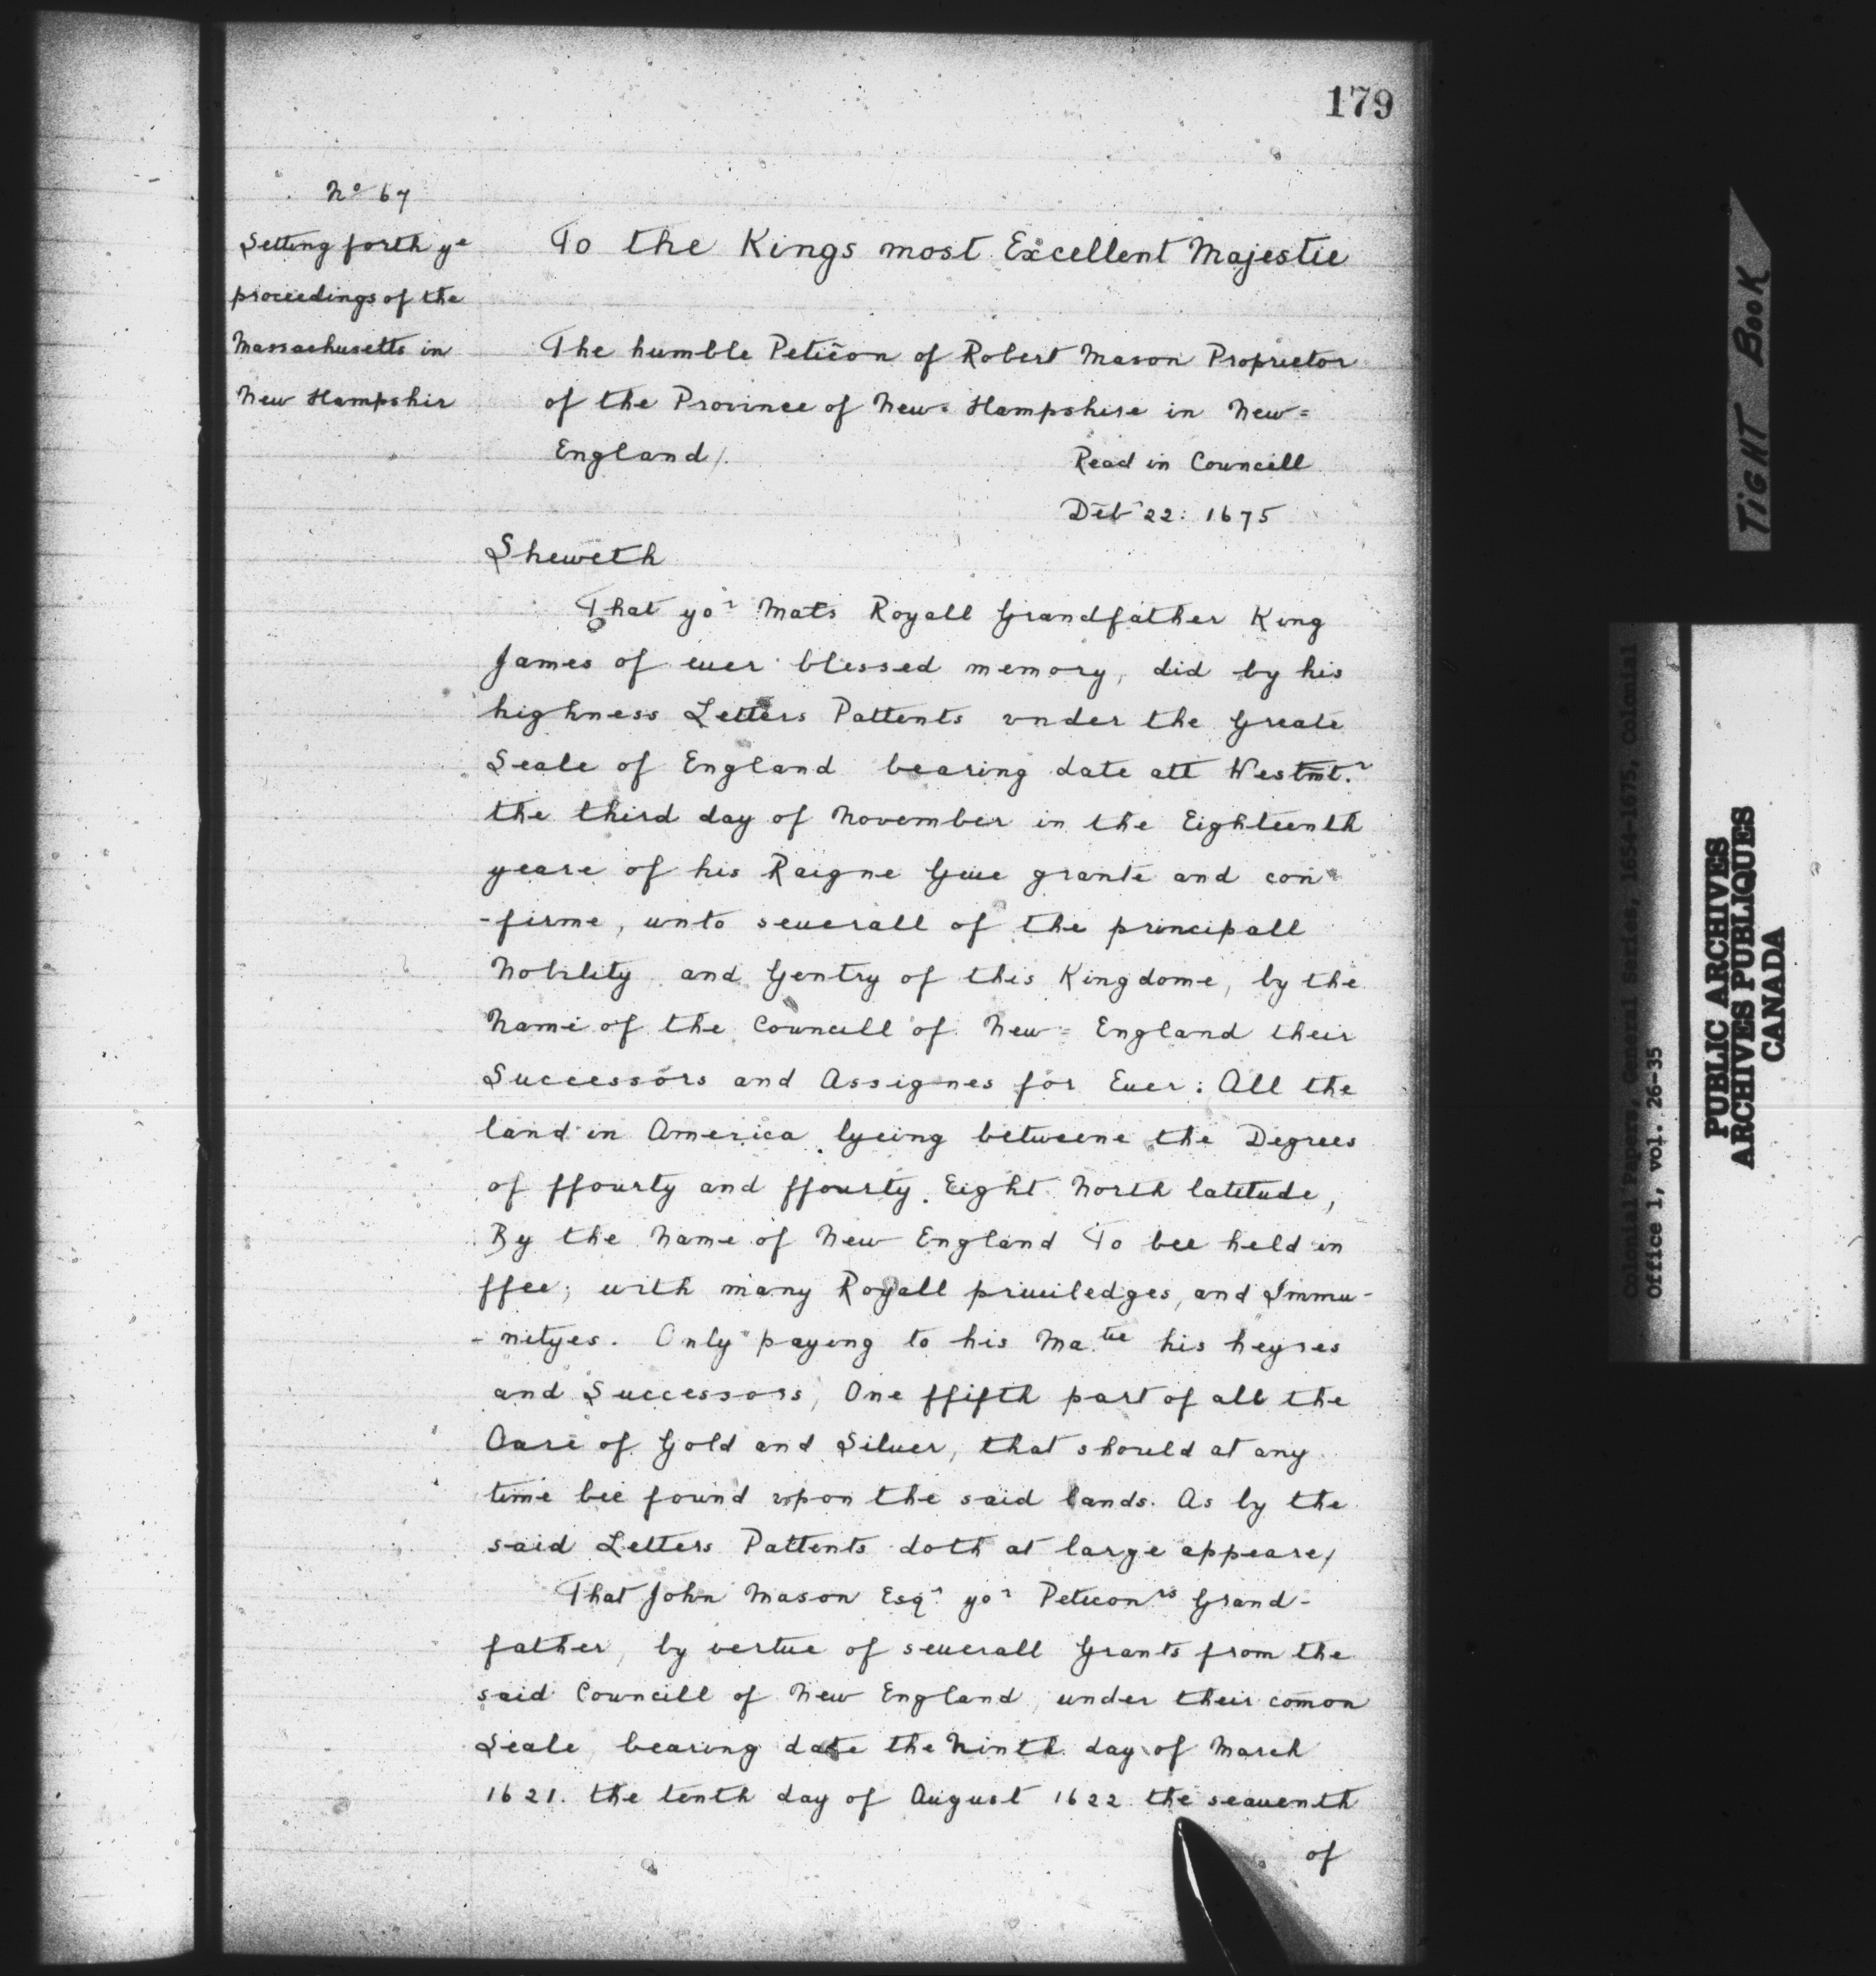 179
No 67
Setting forth ye
proceedings of the
Massachusetts in
New Hampshir
To the Kings most Excellent Majestie
The humble Peticon of Robert Mason Proprietor
of the Province of New= Hampshire in New=
England/.
Read in Councill
22: 1675
Sheweth
That yor Mats Royall Grandfather King
James of euer blessed memory, did by his
highness Letters Pattents vnder the Greate
Seale of England bearing date att Westmt.r
the third day of November in the Eighteenth
yeare of his Raigne Giue grante and con
-firme, unto seuerall of the principall
Nobility and Gentry of this Kingdome, by the
Name of the Councill of New= England their
Successors and Assignes for Euer: All the
land in America lyeing betweene the Degrees
of ffourty and ffourty Eight North latitude,
By the Name of New England To bee held in
ffee; with many Royall priuiledges, and Immu-
-nityes. Only paying to his Ma.tie his heyres
and Successors, One ffifth part of all the
Oare of Gold and Siluer, that should at any
time bee found vpon the said lands. As by the
said Letters Pattents doth at large appeare/
That John Mason Esqr yor Peticonrs Grand-
father, by vertue of seuerall Grants from the
said Councill of New England, under their comon
Seale, bearing date the Ninth day of March
1621. the tenth day of August 1622 the seauenth
of
TIGHT BOOK
Colonial Papers, General Series, 1654-1675, Colonial
Office 1, vol. 26-35
PUBLIC ARCHIVES
ARCHIVES PUBLIQUES
CANADA